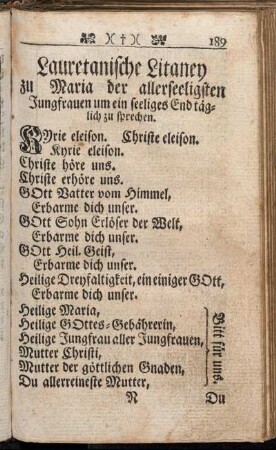 )( † )( 189
Lauretanische Litaney
zu Maria der allerseeligsten
Jungfrauen um ein seeliges End täg-
lich zu sprechen.
KYrie eleison. Christe eleison.
Kyrie eleison.
Christe höre uns.
Christe erhöre uns.
GOtt Vatter vom Himmel,
Erbarme dich unser.
GOtt Sohn Erlöser der Welt,
Erbarme dich unser.
GOtt Heil. Geist,
Erbarme dich unser.
Heilige Dreyfaltigkeit, ein einiger GOtt,
Erbarme dich unser.
Heilige Maria,
Heilige GOttes-Gebährerin,
Heilige Jungfrau aller Jungfrauen,
Mutter Christi,
Mutter der göttlichen Gnaden,
Du allerreineste Mutter,
Bitt für uns.
N Du